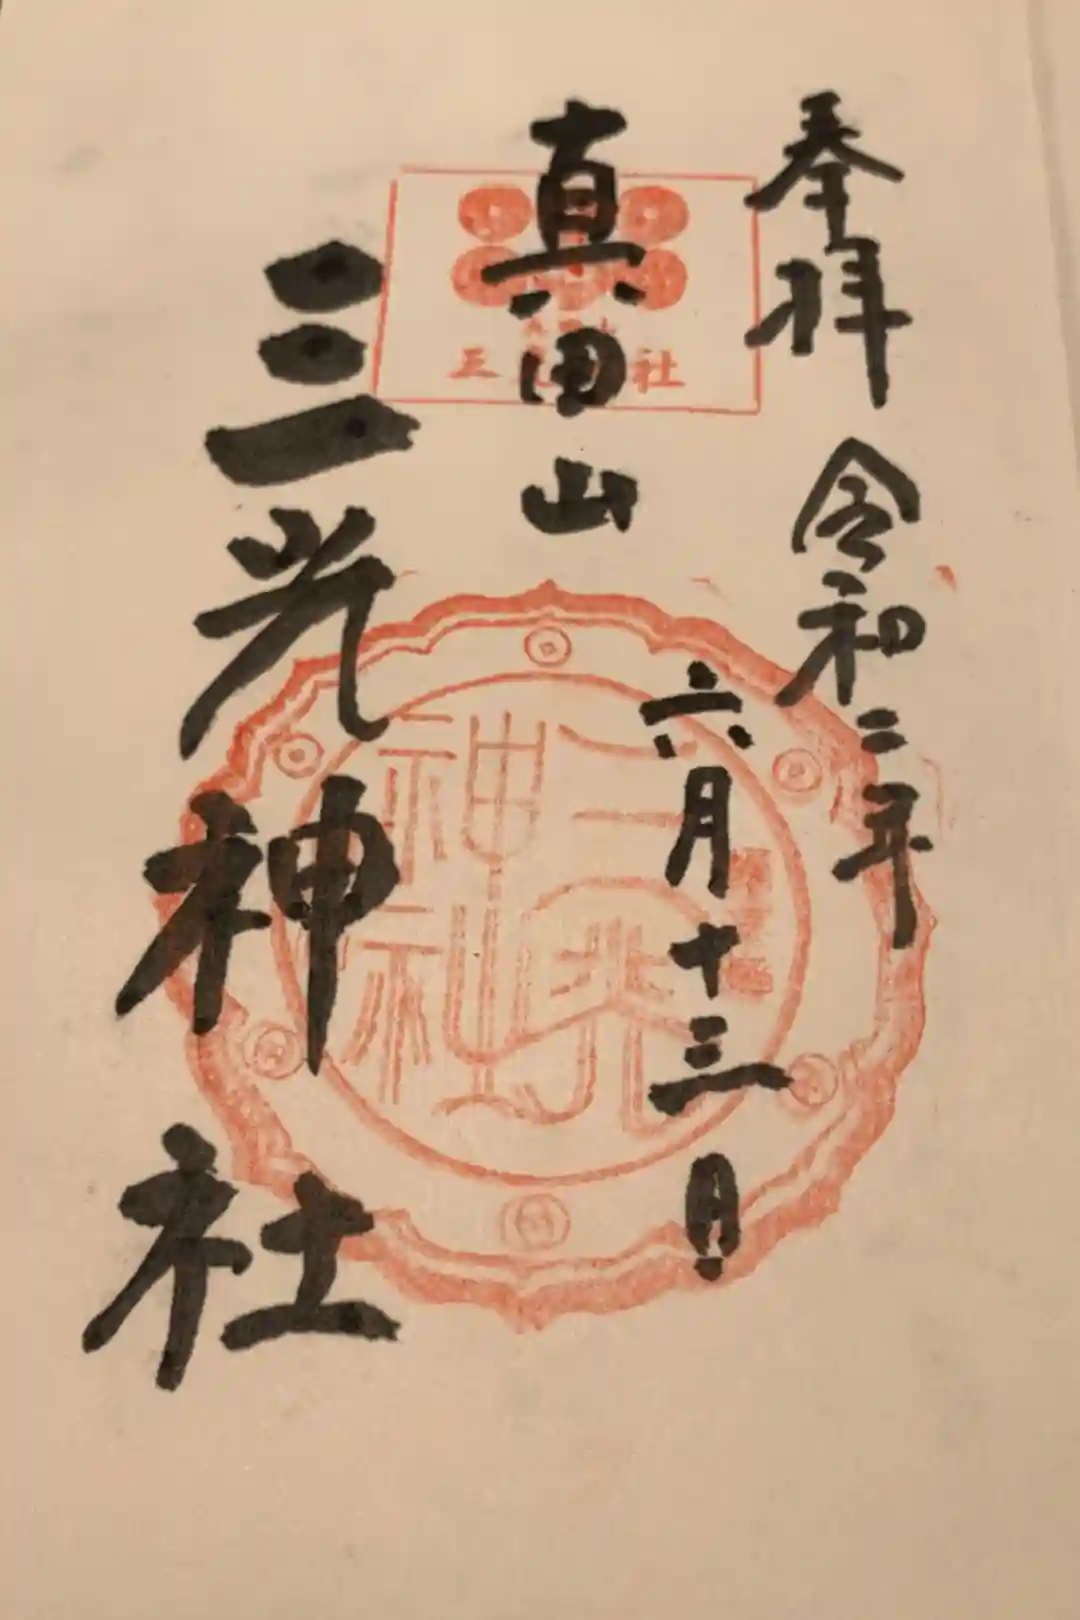 奉拝
令和二年
六月十三日
真田山
三光神社
三光神社
三光神社